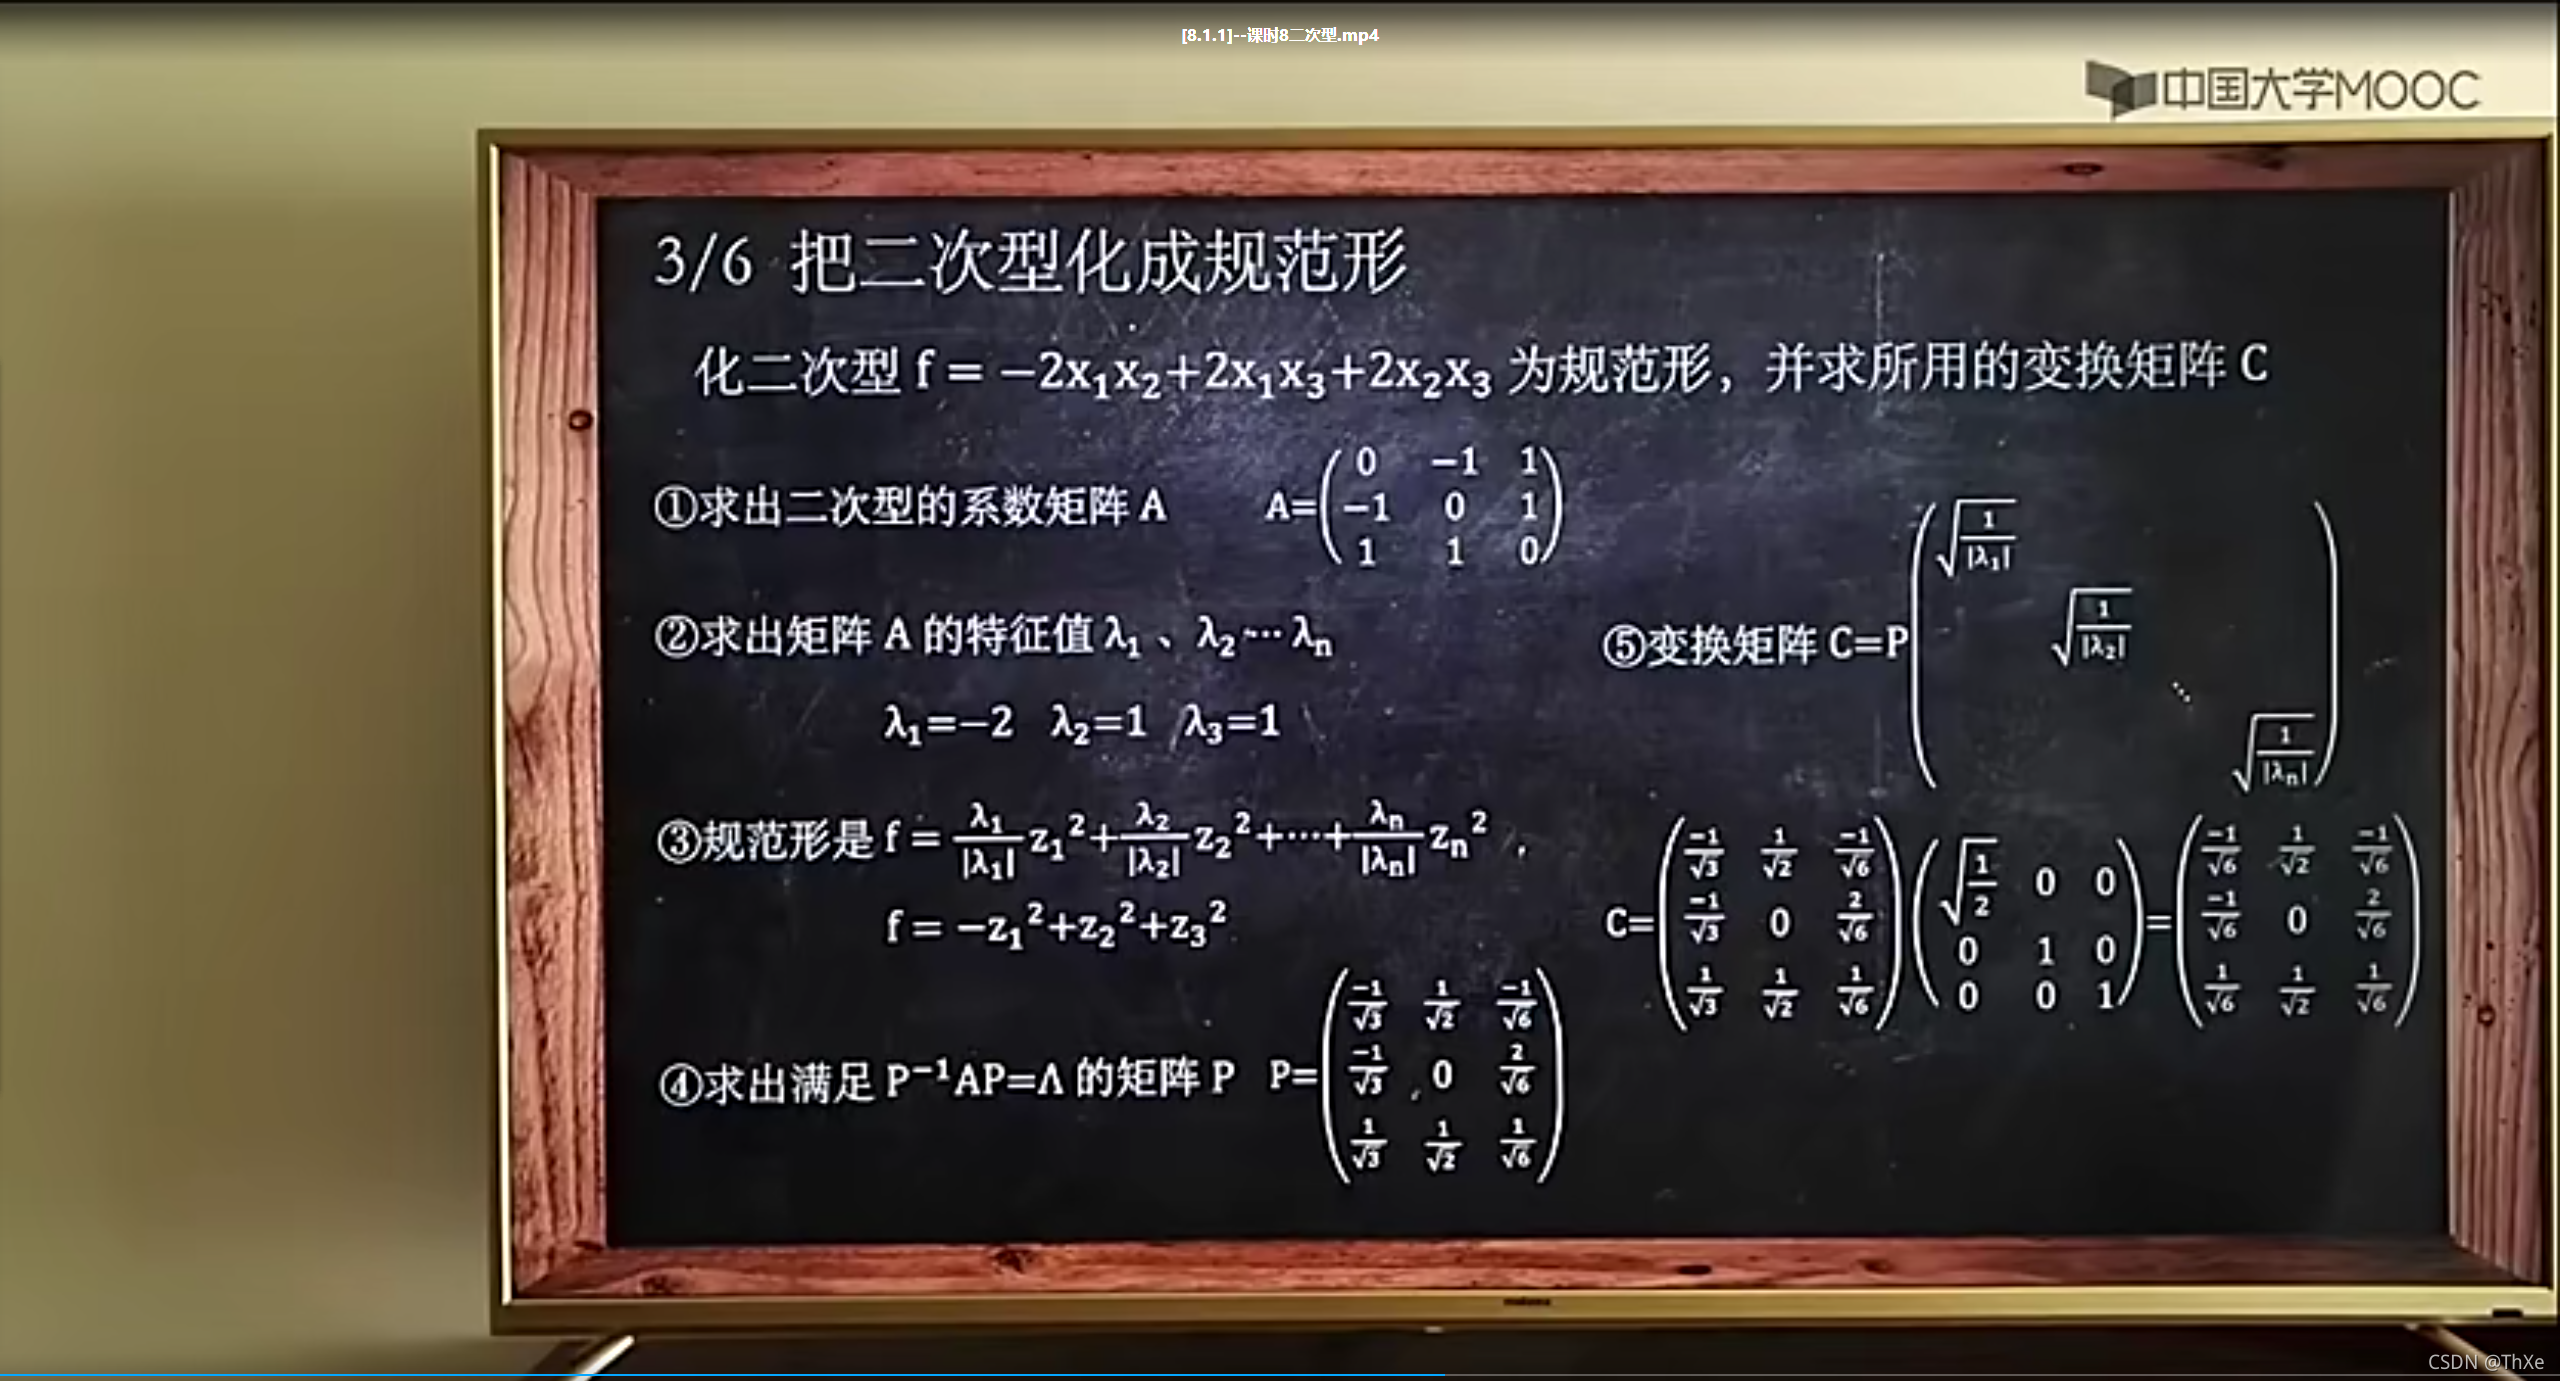 [8.1.1]--课时8二次型.mp4
中国大学MOOC
3/6 把二次型化成规范形
化二次型 f = −2x₁x₂+2x₁x₃+2x₂x₃ 为规范形，并求所用的变换矩阵 C
①求出二次型的系数矩阵 A A=
0 −1 1
−1 0 1
1 1 0
②求出矩阵 A 的特征值 λ₁ 、λ₂ ··· λₙ
λ₁=−2 λ₂=1 λ₃=1
③规范形是 f = λ₁/|λ₁| z₁²+λ₂/|λ₂| z₂²+···+λₙ/|λₙ| zₙ²
f = −z₁²+z₂²+z₃²
④求出满足 P⁻¹AP=Λ 的矩阵 P P=
−1/√3 1/√2 −1/√6
−1/√3 0 2/√6
1/√3 1/√2 1/√6
⑤变换矩阵 C=P
√(1/|λ₁|)
√(1/|λ₂|)
⋱
√(1/|λₙ|)
C=
−1/√3 1/√2 −1/√6
−1/√3 0 2/√6
1/√3 1/√2 1/√6
√(1/2) 0 0
0 1 0
0 0 1
=
−1/√6 1/√2 −1/√6
−1/√6 0 2/√6
1/√6 1/√2 1/√6
CSDN @ThXe